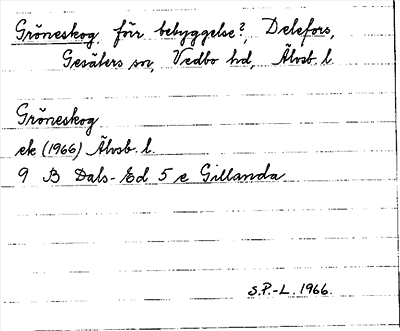 Gröneskog förr bebyggelse?, Delefors,
Gesäters sn, Vedbo hd, Älvsb. l.
Gröneskog
ek (1966) Älvsb. l.
9 B Dals-Ed 5 e Gillanda
S.P.-L. 1966.